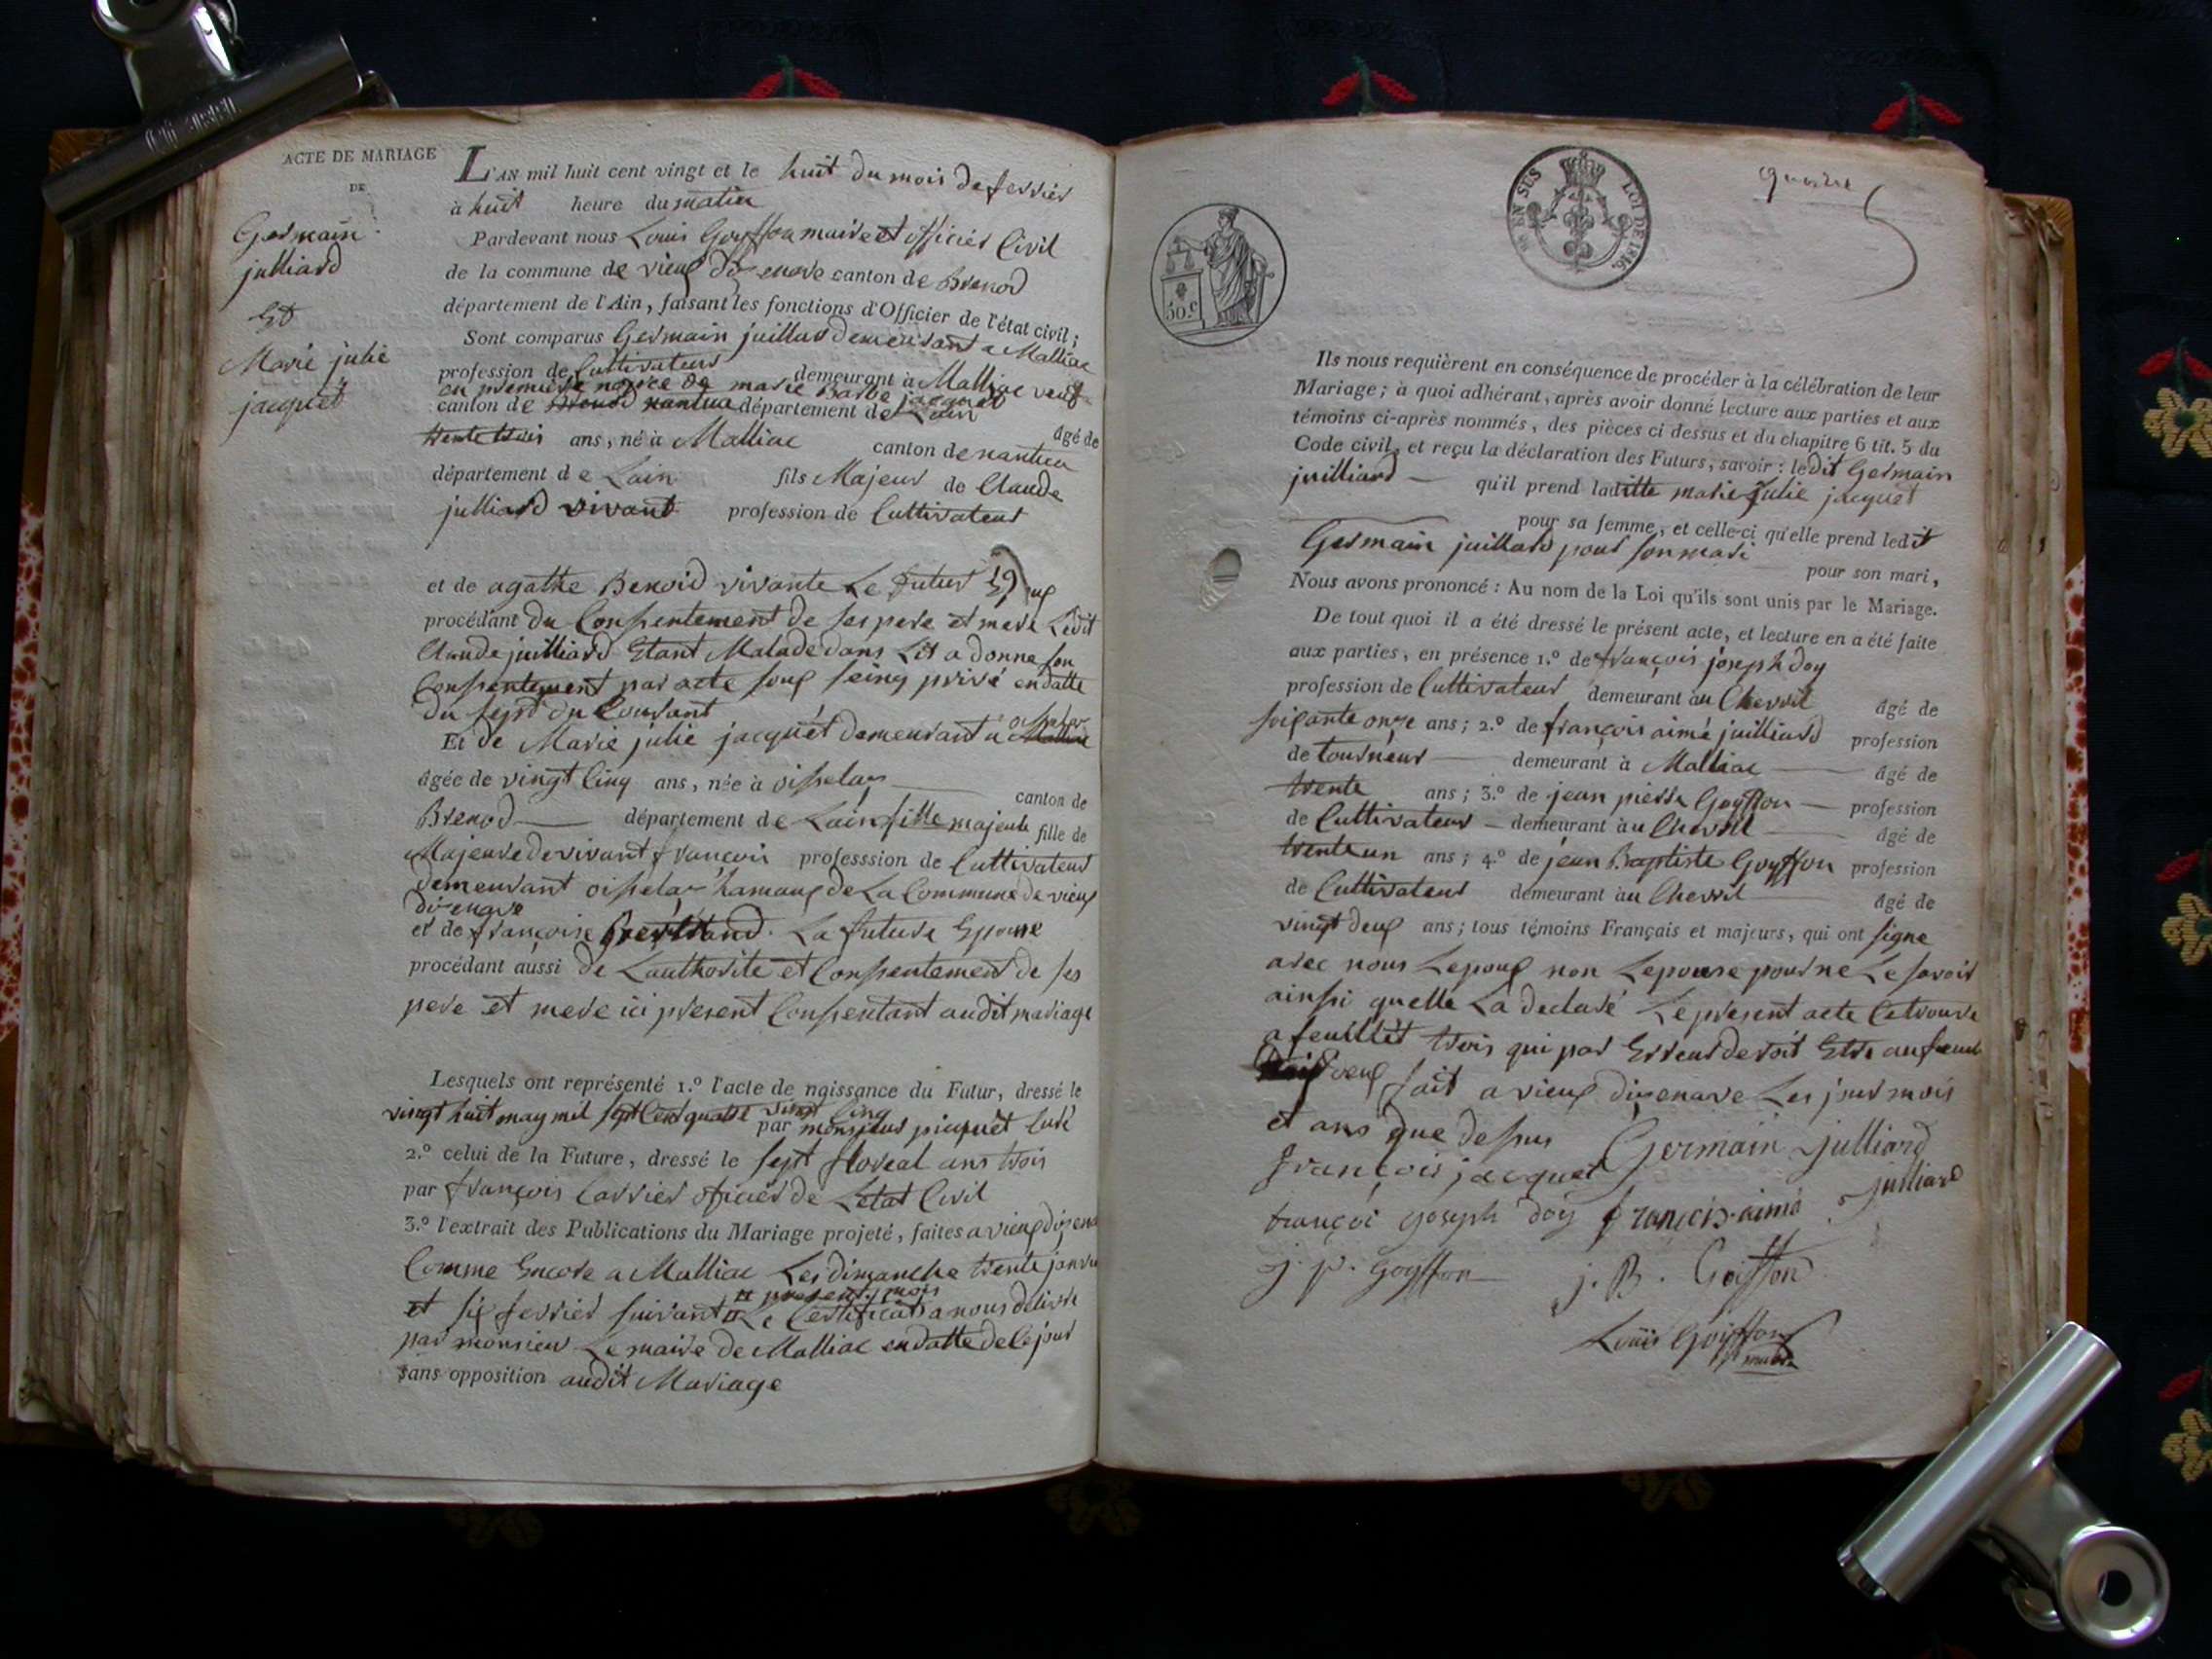 ACTE DE MARIAGE
DE
Germain
julliard
Et
Marie julie
jacquet
L'AN mil huit cent vingt et le huit du mois de fevrier
à huit heure du matin
Pardevant nous Louis Goyffon maire et officier Civil
de la commune de vieux d'izenave canton de Brenod
département de l'Ain, faisant les fonctions d'Officier de l'état civil;
Sont comparus Germain juillard demeurant a Malliac
profession de Cultivateur demeurant à Malliac veuf
en premiere nopce de marie Barbe jacquet
canton de Brenod nantua département de Lain
âgé de
trente trois ans, né à Malliac canton de nantua
département de Lain fils Majeur de Claude
julliard vivant profession de Cultivateur
et de agathe Benoid vivante Le futur Epoux
procédant du Consentement de ses pere et mere Ledit
Claude juilliard Etant Malade dans Lit a donne son
Consentement par acte soux seing privé en datte
du sept du Courant
Et de Marie julie jacquet demeurant a oisselas
âgée de vingt Cinq ans, née à oisselas canton de
Brenod département de Lain fille majeure fille de
Majeure de vivant françois professsion de Cultivateur
demeurant oisselas hamaux de La Commune de vieux
dizenave
et de françoise La future Epouse
procédant aussi de Lauthorite et Consentement de ses
pere et mere ici present Consentant audit mariage
Lesquels ont représenté 1.º l'acte de naissance du Futur, dressé le
vingt huit may mil sept Cent quatre vingt Cinq
par monsieur piquet Curé
2.º celui de la Future, dressé le sept floreal ans trois
par françois Carrier oficier de Letat Civil
3.º l'extrait des Publications du Mariage projeté, faites a vieux dizena
Comme Encore a Malliac Les dimanche trente janvie
et six fevrier suivant # Le Certificat a nous delivre
# present mois
par monsieur Le maire de Malliac en datte de Ce jour
sans opposition audit Mariage
EN SUS LOI DE 1816.
50.c
quatre
Ils nous requièrent en conséquence de procéder à la célébration de leur
Mariage; à quoi adhérant, après avoir donné lecture aux parties et aux
témoins ci-après nommés, des pièces ci dessus et du chapitre 6 tit. 5 du
Code civil, et reçu la déclaration des Futurs, savoir: ledit Germain
juilliard qu'il prend laditte marie Julie jacquet
pour sa femme, et celle-ci qu'elle prend ledit
Germain juillard pour son mari
pour son mari,
Nous avons prononcé: Au nom de la Loi qu'ils sont unis par le Mariage.
De tout quoi il a été dressé le présent acte, et lecture en a été faite
aux parties, en présence 1.º de françois joseph doy
profession de Cultivateur demeurant au Chevril âgé de
soixante onze ans; 2.º de françois aimé juilliard profession
de tourneur demeurant à Malliac âgé de
trente ans; 3.º de jean pierre Goyffon profession
de Cultivateur demeurant au Chevril âgé de
trente un ans; 4.º de jean Baptiste Goyffon profession
de Cultivateur demeurant au Chevril âgé de
vingt deux ans; tous témoins Français et majeurs, qui ont signe
avec nous Lepoux non Lepouse pour ne Le savoir
ainsi quelle La declaré Le present acte Ce trouve
a feuillet trois qui par Erreur devoit Etre au feuil
deux fait a vieux dizenave Les jour mois
et ans que dessus Germain Julliard
françois jacquet
françoi Joseph doy françcis aimé Julliard
j. p. Goyffon j. B. Goiffon
Louis Goyffon
maire